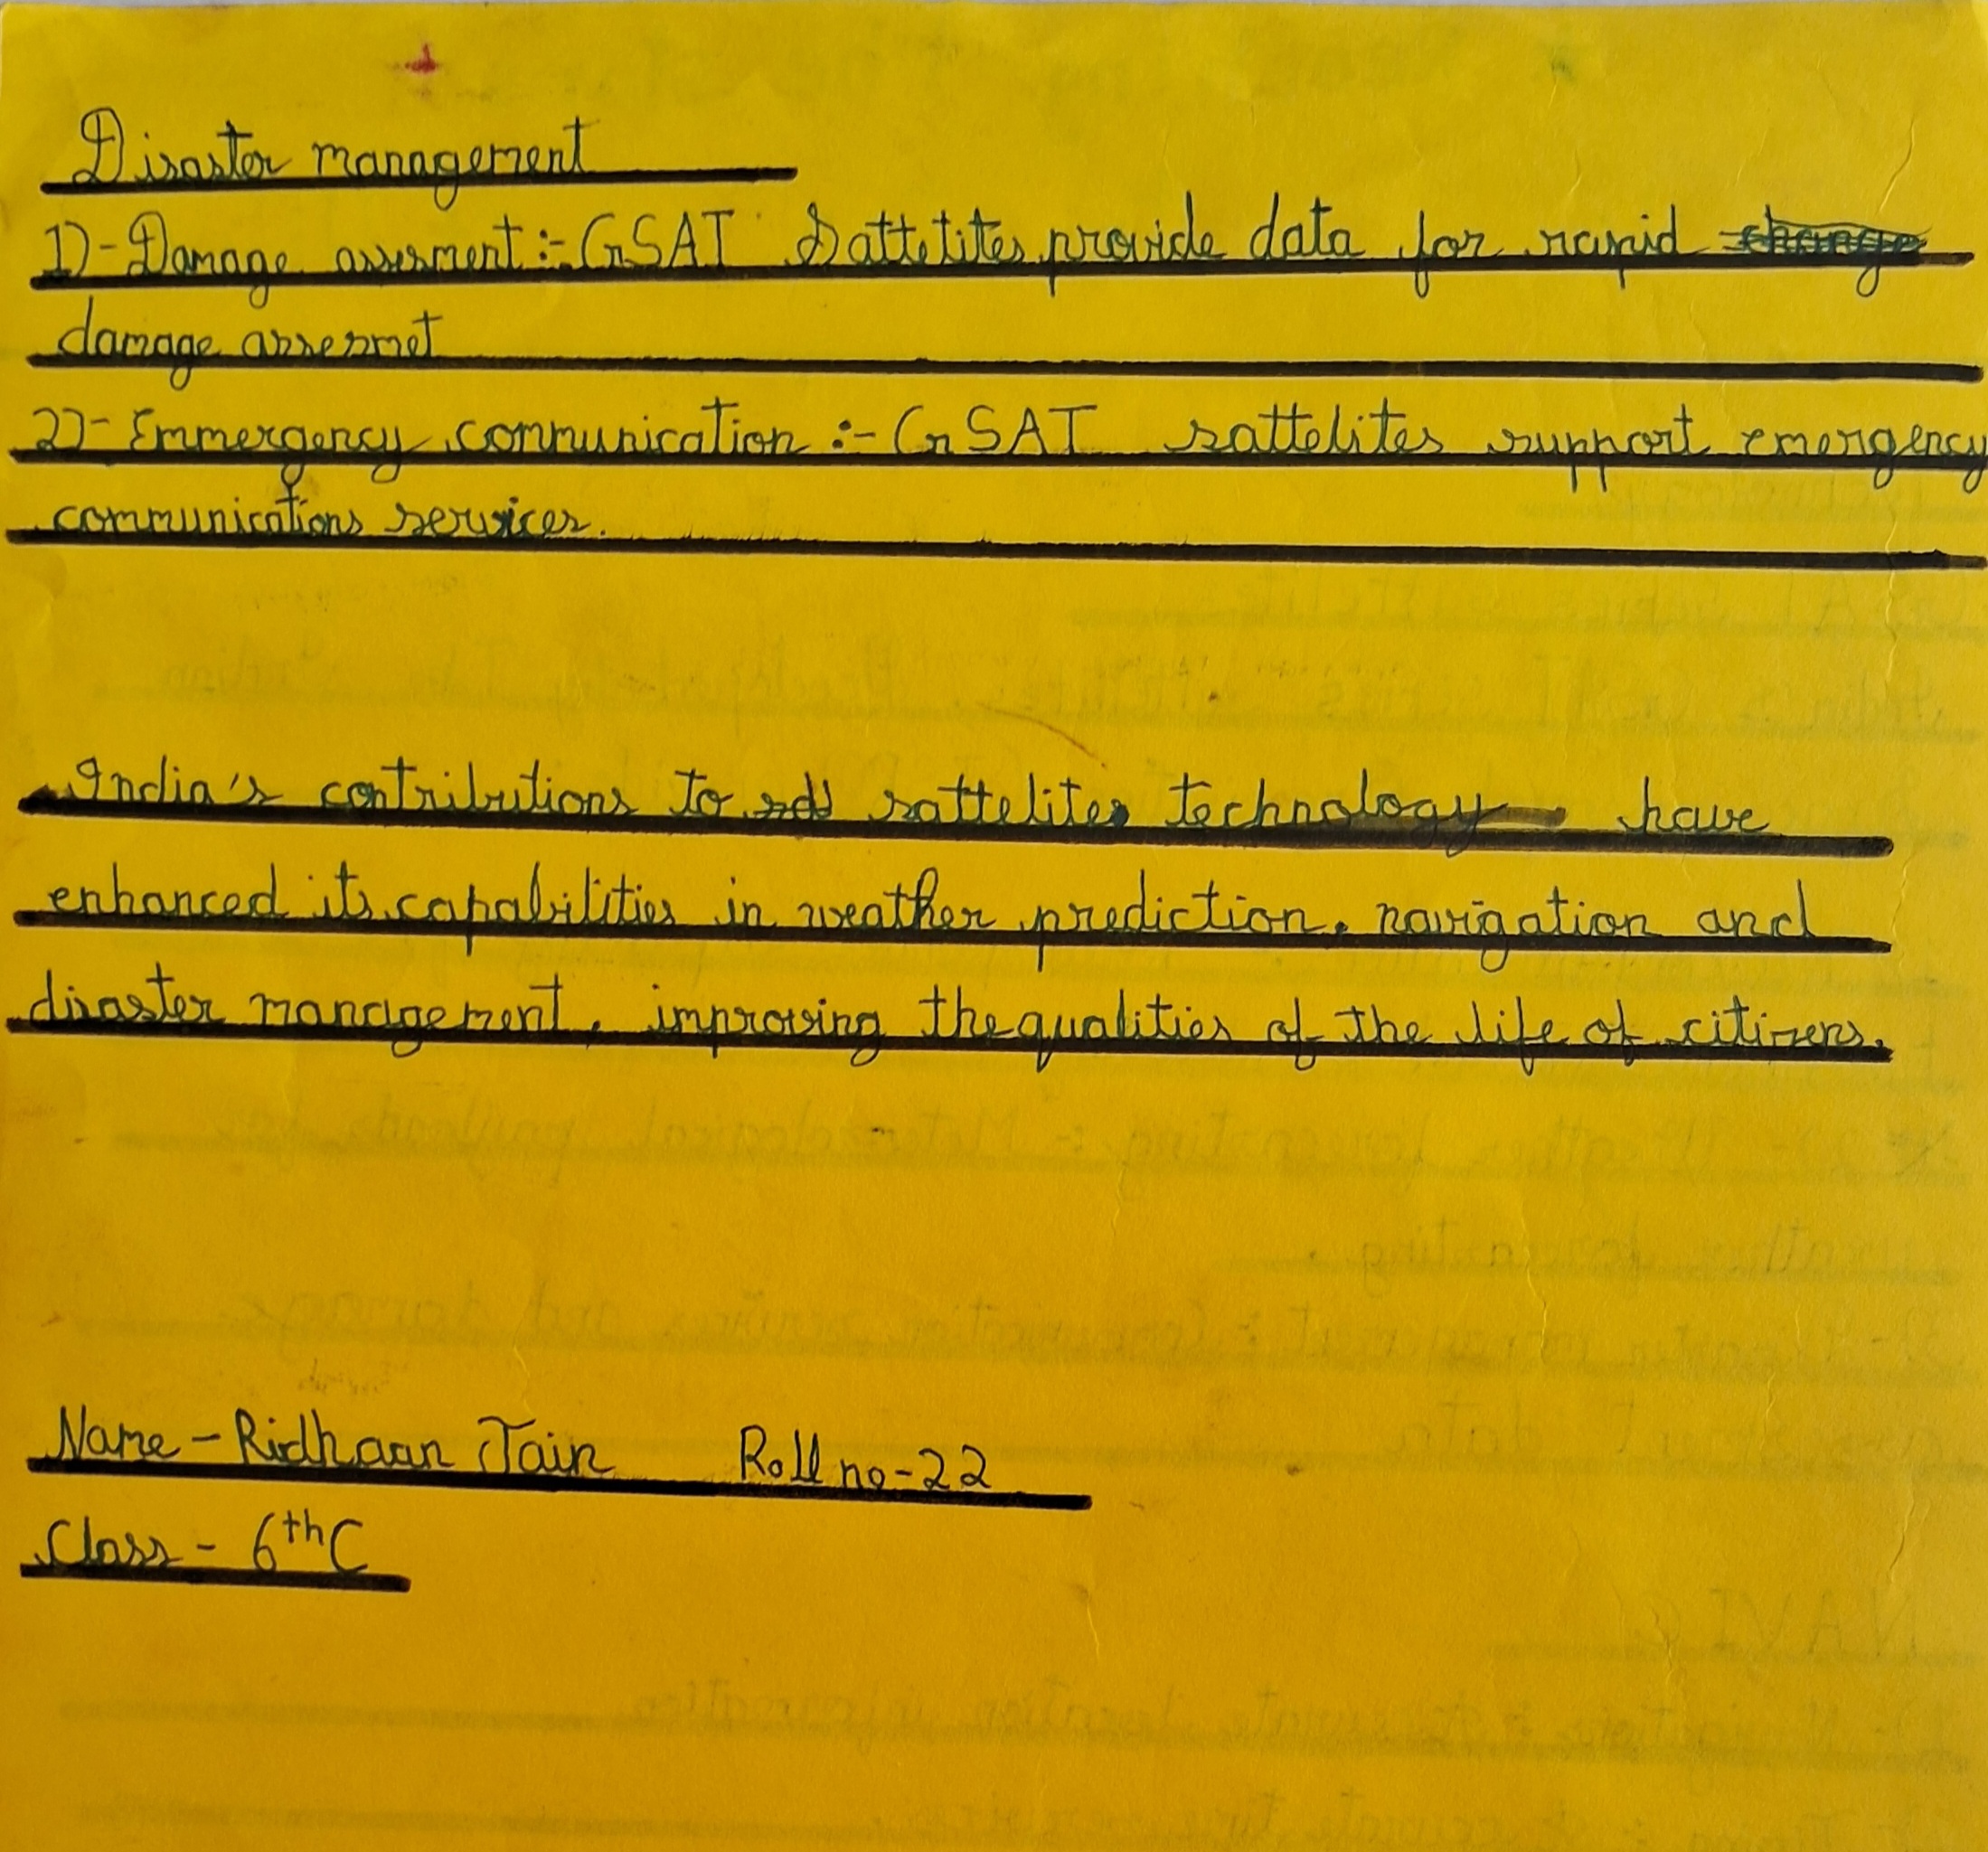 Disaster management
1)-Damage assesment :- GSAT Sattetites provide data for rapid change
damage assesmet
2)- Emmergency communication :- GSAT sattelites support emergency
communications services.
India's contributions to sattelites technology have
enhanced its capabilities in weather prediction, navigation and
disaster management, improving the qualities of the life of citizens.
Name - Ridhaan Jain Roll no-22
Class - 6th C